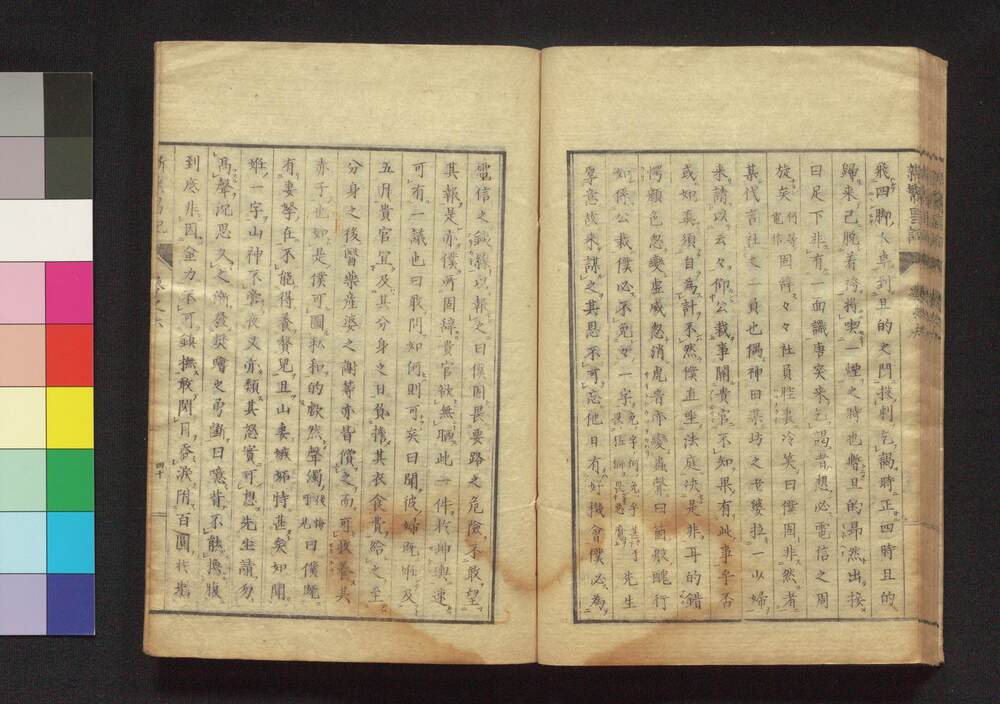 飛四脚人車到旦的之門投刺乞謁時正四時旦的
歸來已脫着袴將喫一煙之時也暫旦的昂然出接
曰足下非有一面識唐突來乞謁者想必電信之周
旋矣
何等周
電信
固辞々々社員胜裏冷笑曰僕固非然者
某代言社之一員也偶神田某坊之老婆拉一少婦
來請以云々仰公裁事關貴官不知果有此事乎否
或如真須自為計不然僕直坐法庭決是非耳的錯
愕顏色忽變虛威忽消虎音亦變蟲聲曰箇般醜行
如係公裁僕必不免々一字
先生
厚意故來謀之其恩不可忘他日有好機會僕必為
電信之鍼線以報之曰僕固畏要路之危險不敢望
其報是亦僕所固辞貴官欲無晒此一件於坤輿速
可有一議也曰敢問如何則可矣曰聞彼婦既妊及
五月貴官宜及其分身之日負擔其衣食費給之至
分身之後醫藥産婆之謝等亦皆償之而可收養其
赤子也如是僕可圖私和的歡然聲濁
曰僕既
有妻拏在不能得養贅兒且山妻嫉妬特甚矣如聞
妊一字山神不啻夜叉亦類其怒實可想先生請勿
高聲沈思久之漸發焚噲之勇斷曰噫背不能換腹
到底非因金力不可鎮撫敢閉目呑淚附百圓於某
四十